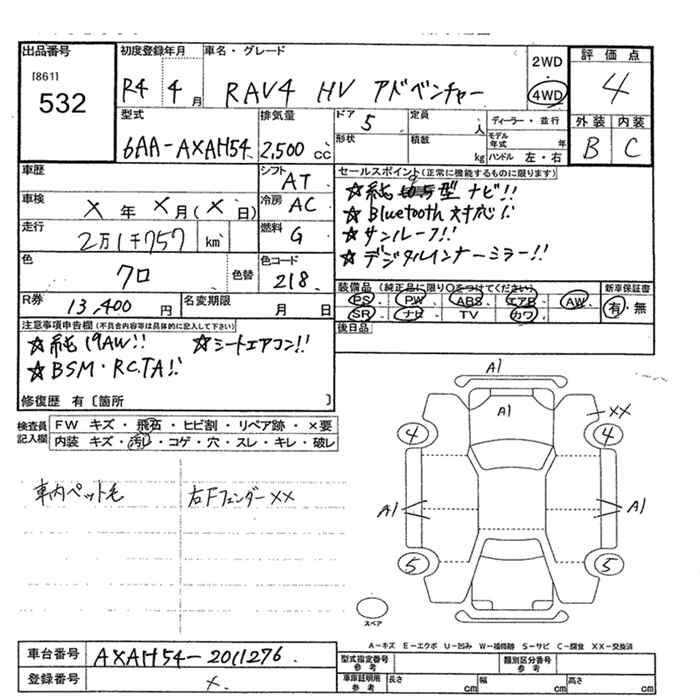 出品番号
[861]
532
初度登録年月
R4 4月
車名・グレード
RAV4 HV アドベンチャー
2WD
4WD
評価点
4
外装 内装
B C
型式
6AA-AXAH54
排気量
2,500cc
ドア
5
形状
定員 人
積数 kg
ディーラー・並行
モデル年式 年
ハンドル 左・右
車歴
シフト AT
車検 × 年 × 月(× 日)
冷房 AC
走行 2万1千757 km
燃料 G
色 クロ 色替
色コード 218
R券 13,400円
名変期限 月 日
セールスポイント(正常に機能するものに限ります)
☆純 型 ナビ!!
☆Bluetooth 対応!!
☆サンルーフ!!
☆デジタルインナーミラー!!
装備品 (純正品に限り○をつけてください) 新車保証書
PS PW ABS エアB AW 有・無
SR ナビ TV カワ
後日品
注意事項申告欄(不具合内容等は具体的に記入して下さい)
☆純19AW!! ☆シートエアコン!!
☆BSM・RCTA!!
修復歴 有 [箇所 ]
検査員記入欄
FW キズ・飛石・ヒビ割・リペア跡・×要
内装 キズ・汚れ・コゲ・穴・スレ・キレ・破レ
車内ペット毛
右Fフェンダー××
A1
A1
××
4 4
A1 A1
5 5
スペア
A-キズ E-エクボ U-凹み W-補修跡 S-サビ C-腐食 XX-交換済
車台番号 AXAH54-2011276
登録番号 ×
型式指定番号参考
類別区分番号参考
車庫証明用参考 長さ cm 幅 cm 高さ cm